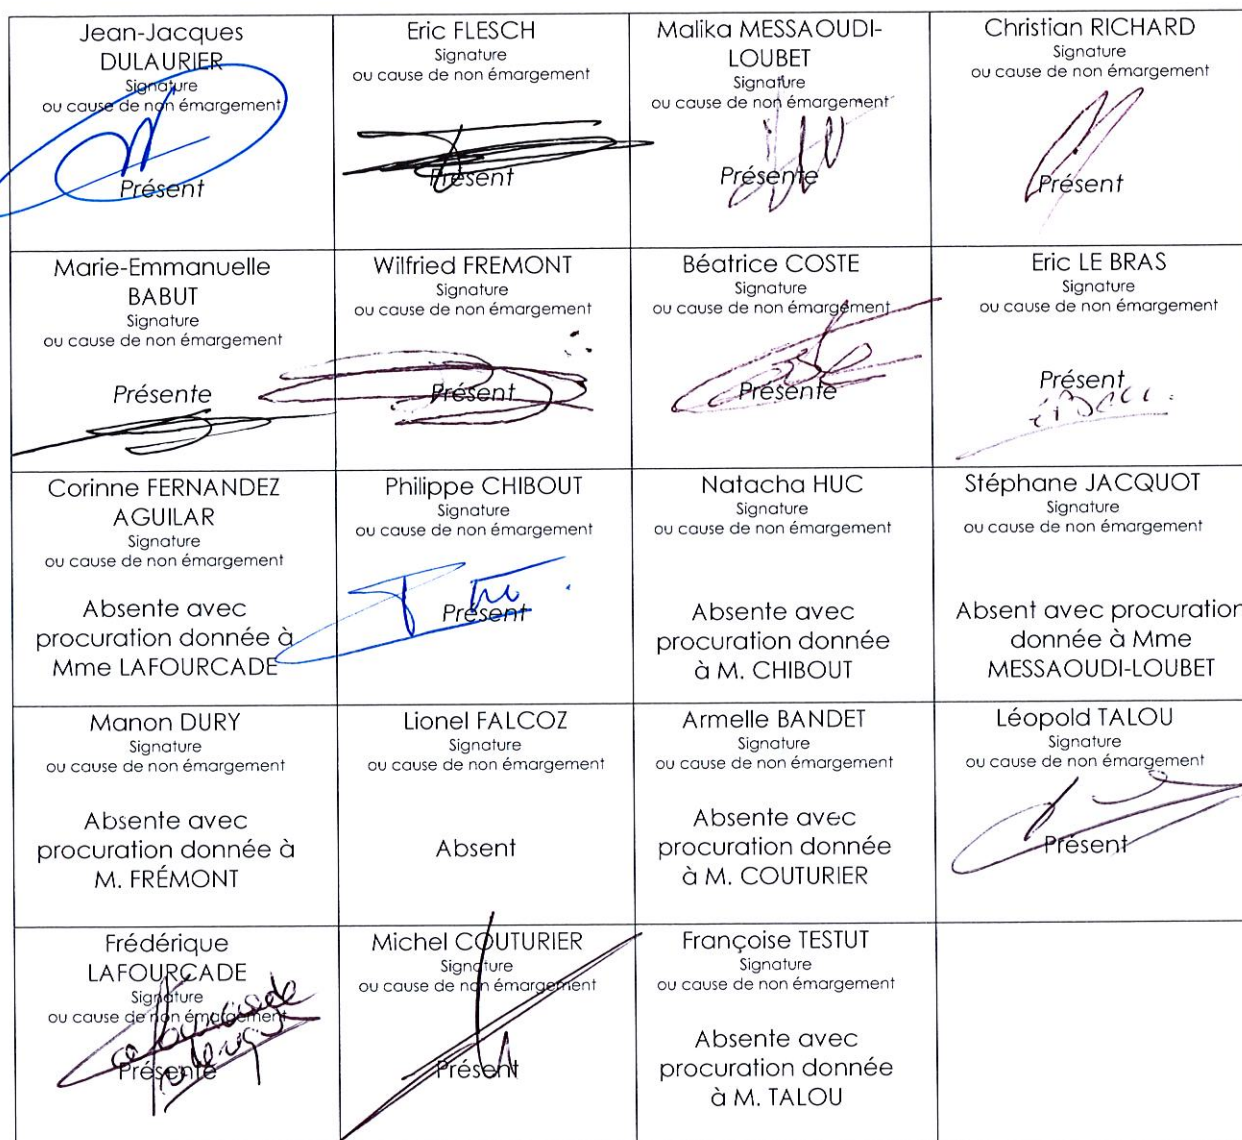 Jean-Jacques
DULAURIER
Signature
ou cause de non émargement
Présent
Eric FLESCH
Signature
ou cause de non émargement
Présent
Malika MESSAOUDI-
LOUBET
Signature
ou cause de non émargement
Présente
Christian RICHARD
Signature
ou cause de non émargement
Présent
Marie-Emmanuelle
BABUT
Signature
ou cause de non émargement
Présente
Wilfried FREMONT
Signature
ou cause de non émargement
Présent
Béatrice COSTE
Signature
ou cause de non émargement
Présente
Eric LE BRAS
Signature
ou cause de non émargement
Présent
Corinne FERNANDEZ
AGUILAR
Signature
ou cause de non émargement
Absente avec
procuration donnée à
Mme LAFOURCADE
Philippe CHIBOUT
Signature
ou cause de non émargement
Présent
Natacha HUC
Signature
ou cause de non émargement
Absente avec
procuration donnée
à M. CHIBOUT
Stéphane JACQUOT
Signature
ou cause de non émargement
Absent avec procuration
donnée à Mme
MESSAOUDI-LOUBET
Manon DURY
Signature
ou cause de non émargement
Absente avec
procuration donnée à
M. FRÉMONT
Lionel FALCOZ
Signature
ou cause de non émargement
Absent
Armelle BANDET
Signature
ou cause de non émargement
Absente avec
procuration donnée
à M. COUTURIER
Léopold TALOU
Signature
ou cause de non émargement
Présent
Frédérique
LAFOURCADE
Signature
ou cause de non émargement
Présente
Michel COUTURIER
Signature
ou cause de non émargement
Présent
Françoise TESTUT
Signature
ou cause de non émargement
Absente avec
procuration donnée
à M. TALOU